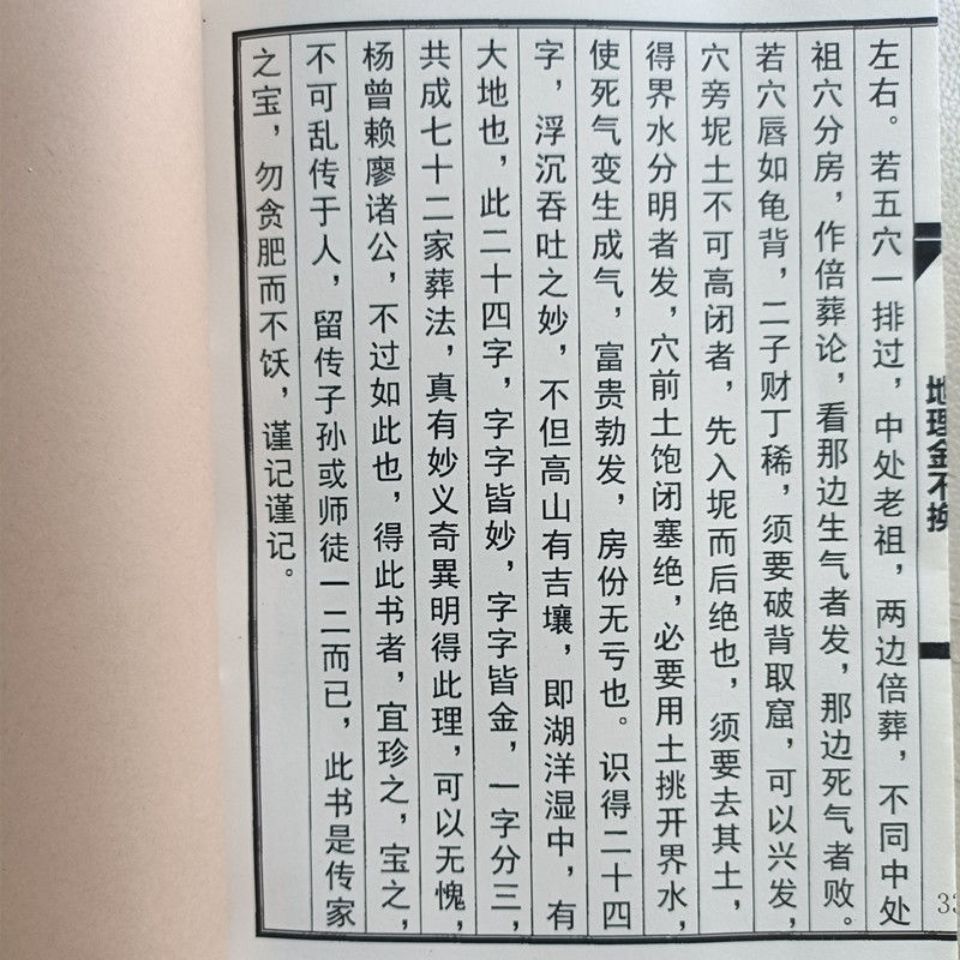 左右。若五穴一排过，中处老祖，两边倍葬，不同中处
祖穴分房，作倍葬论，看那边生气者发，那边死气者败。
若穴唇如龟背，二子财丁稀，须要破背取窟，可以兴发，
穴旁坭土不可高闭者，先入坭而后绝也，须要去其土，
得界水分明者发，穴前土饱闭塞绝，必要用土挑开界水，
使死气变生成气，富贵勃发，房份无亏也。识得二十四
字，浮沉吞吐之妙，不但高山有吉壤，即湖洋湿中，有
大地也，此二十四字，字字皆妙，字字皆金，一字分三，
共成七十二家葬法，真有妙义奇異明得此理，可以无愧，
杨曾赖廖诸公，不过如此也，得此书者，宜珍之，宝之，
不可乱传于人，留传子孙或师徒一二而已，此书是传家
之宝，勿贪肥而不饫，谨记谨记。
地理金不换